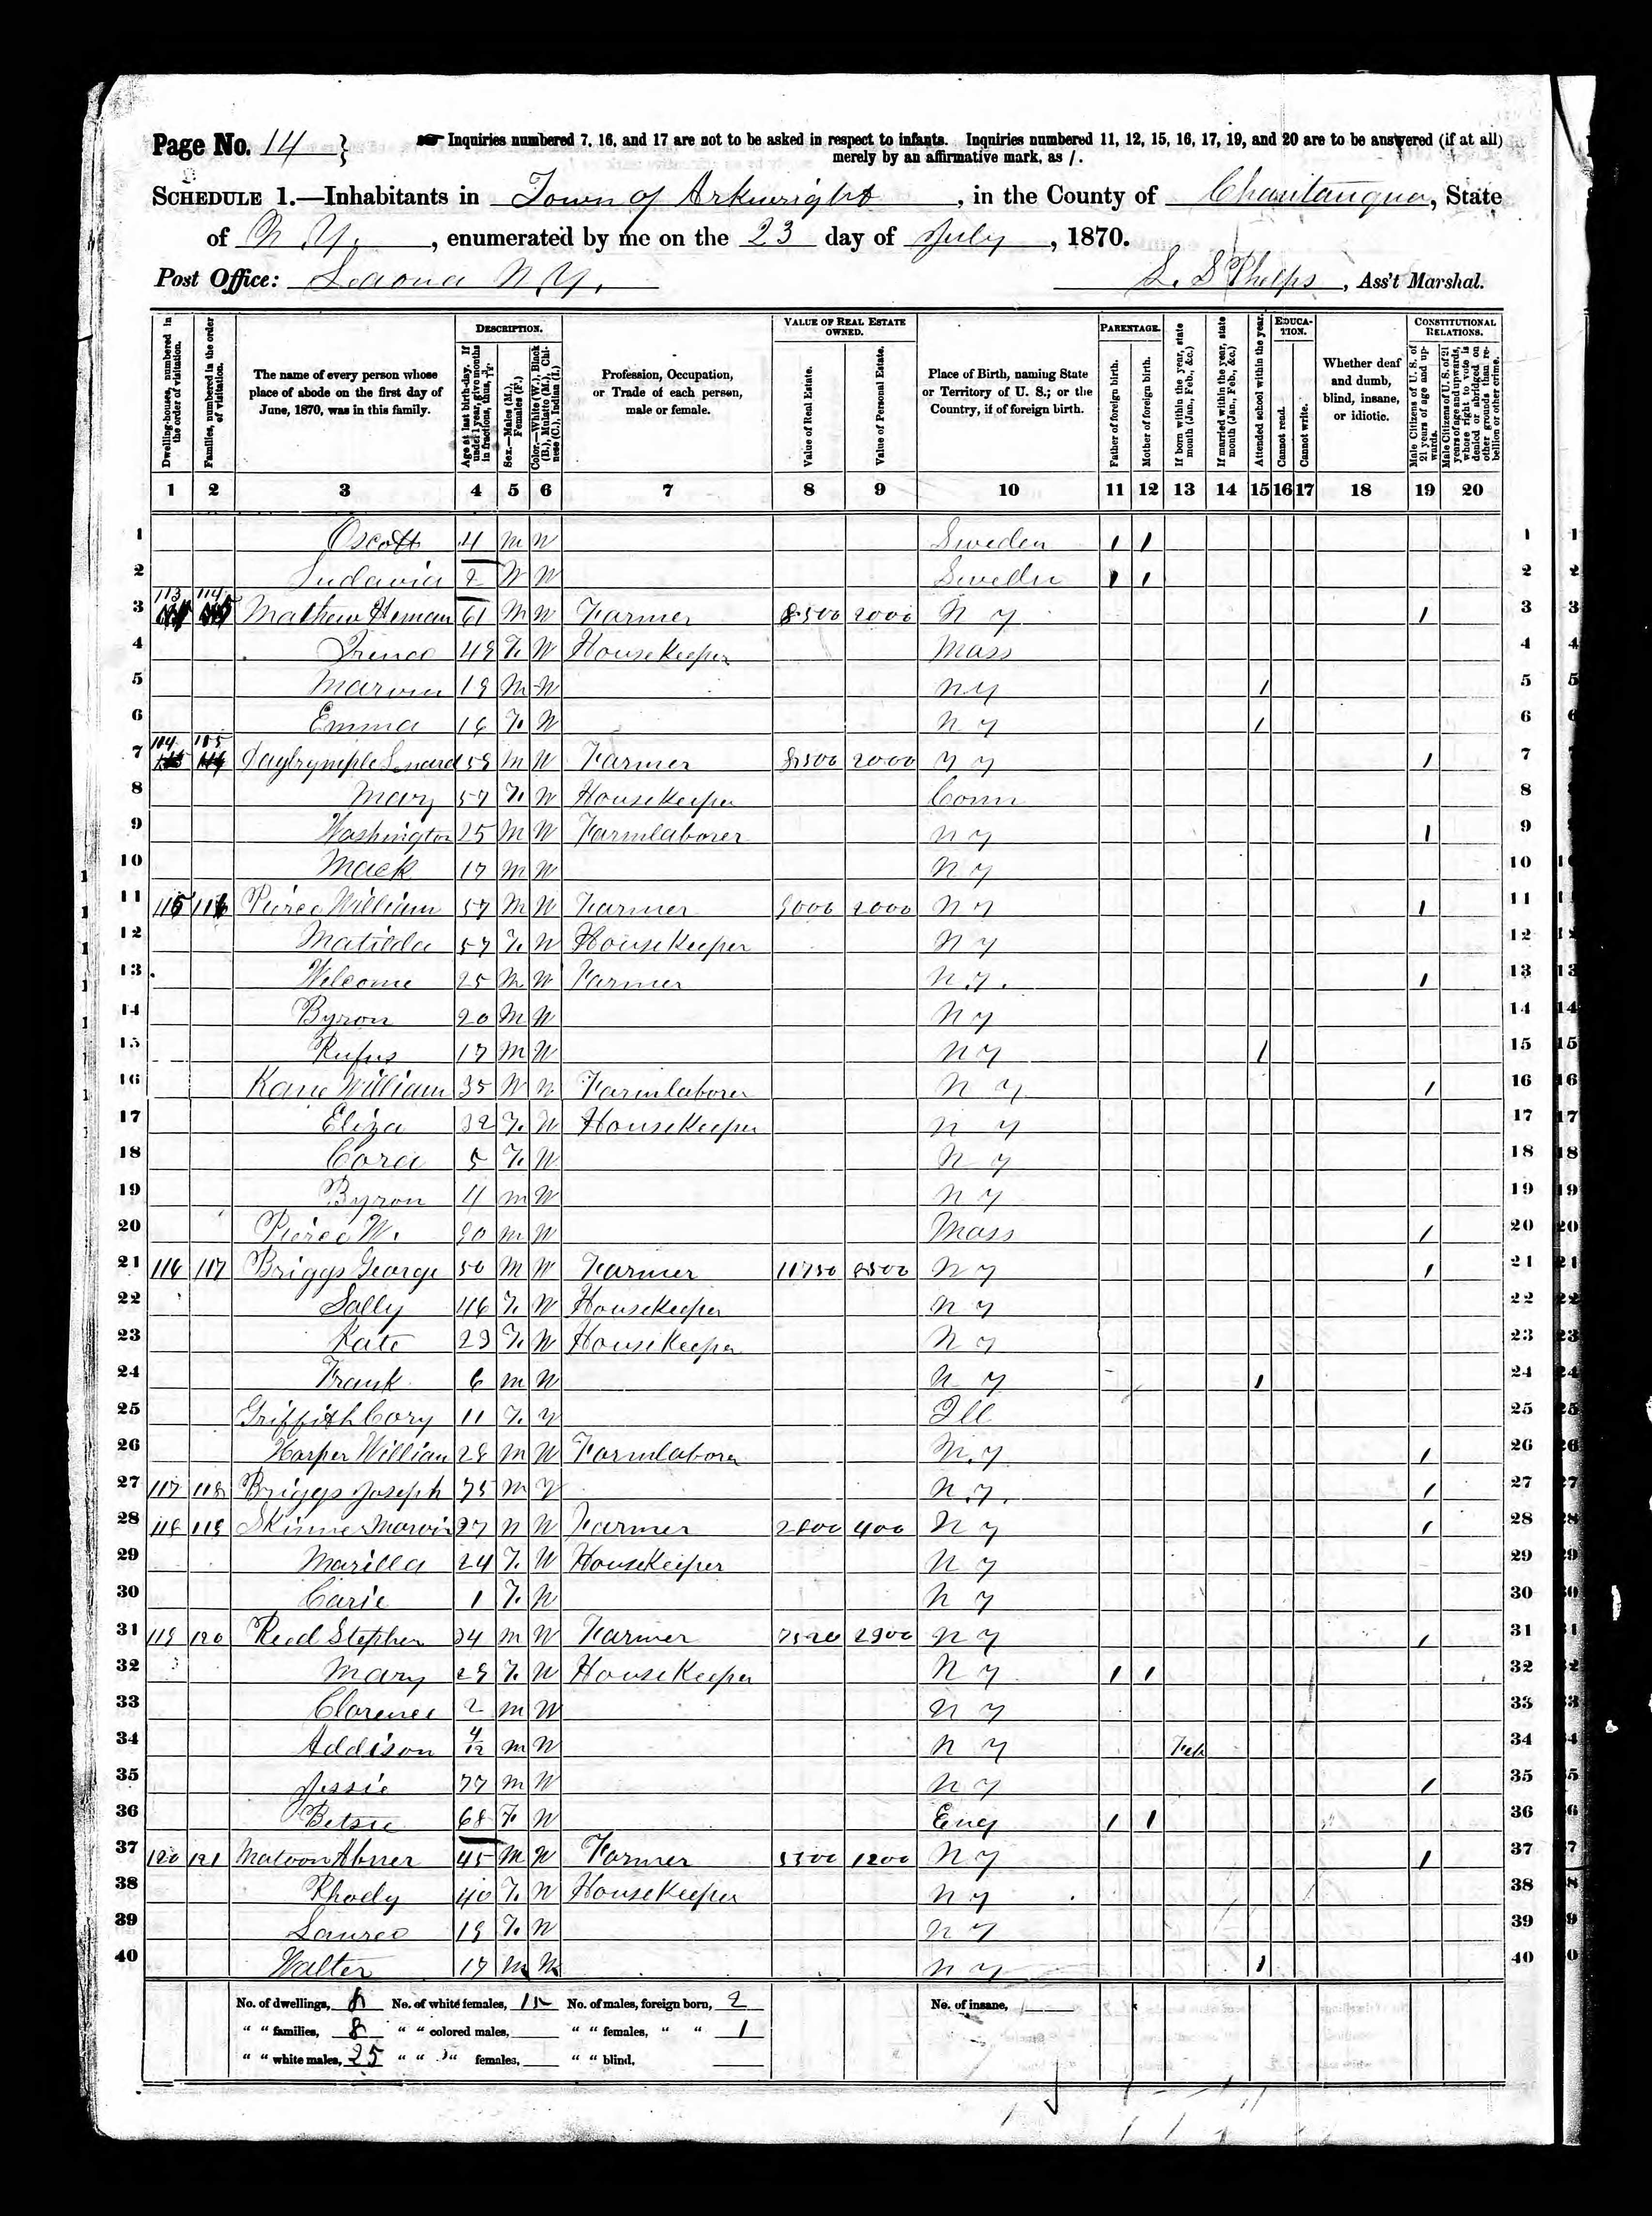 Page No. 14 }
Inquiries numbered 7, 16, and 17 are not to be asked in respect to infants. Inquiries numbered 11, 12, 15, 16, 17, 19, and 20 are to be answered (if at all)
merely by an affirmative mark, as /.
SCHEDULE 1.—Inhabitants in Town of Arkwright, in the County of Chautauqua, State
of N. Y., enumerated by me on the 23 day of July, 1870.
Post Office: Laona N. Y. L. S Phelps, Ass't Marshal.
Dwelling-houses, numbered in the order of visitation.
Families, numbered in the order of visitation.
The name of every person whose place of abode on the first day of June, 1870, was in this family.
DESCRIPTION.
Age at last birth-day. If under 1 year, give months in fractions, thus, 3/12.
Sex.—Males (M.), Females (F.)
Color.—White (W.), Black (B.), Mulatto (M.), Chinese (C.), Indian (I.)
Profession, Occupation, or Trade of each person, male or female.
VALUE OF REAL ESTATE OWNED.
Value of Real Estate.
Value of Personal Estate.
Place of Birth, naming State or Territory of U. S.; or the Country, if of foreign birth.
PARENTAGE.
Father of foreign birth.
Mother of foreign birth.
If born within the year, state month (Jan., Feb., &c.)
If married within the year, state month (Jan., Feb., &c.)
Attended school within the year.
EDUCATION.
Cannot read.
Cannot write.
Whether deaf and dumb, blind, insane, or idiotic.
CONSTITUTIONAL RELATIONS.
Male Citizens of U. S. of 21 years of age and upwards.
Male Citizens of U. S. of 21 years of age and upwards, whose right to vote is denied or abridged on other grounds than rebellion or other crime.
1 2 3 4 5 6 7 8 9 10 11 12 13 14 15 16 17 18 19 20
1 4 M W Sweden / / 1
2 2 W Sweden / / 2
3 113 114 Mathew Heman 61 M W Farmer 8500 2000 N Y / 3
4 49 F. W HouseKeeper Mass 4
5 Marvin 19 M W N Y / 5
6 Emma 16 F. W N Y / 6
7 Daylrymple Lenard 59 M W Farmer 8500 2000 N Y / 7
8 Mary 57 F. W HouseKeeper Conn 8
9 Washington 25 M W Farmlaborer N Y / 9
10 Mack 17 M W N Y 10
11 115 116 Pierce William 57 M W Farmer 9000 2000 N Y / 11
12 Matilda 57 F. W HouseKeeper N Y 12
13 Welcome 25 M W Farmer N. Y. / 13
14 Byron 20 M W N Y 14
15 Rufus 17 M W N Y / 15
16 Kane William 35 W Farmlaborer N Y / 16
17 Eliza 32 F. W HouseKeeper N Y 17
18 Cora 5 F. W N Y 18
19 Byron 4 M W N Y 19
20 Pierce W. M W Mass / 20
21 116 117 Briggs George 50 M W Farmer 11750 8500 N Y / 21
22 Sally 46 F. W HouseKeeper N Y 22
23 Kate 23 F. W HouseKeeper N Y 23
24 Frank 6 M W N Y / 24
25 Griffith Cory 11 F. Ill 25
26 Harper William 28 M W Farmlaborer N. Y / 26
27 117 118 Briggs Joseph 75 M N. Y. / 27
28 118 119 Skinner Marvin 27 W Farmer 2800 400 N Y / 28
29 Marilla 24 F. W HouseKeeper N Y 29
30 Carie 1 F. W N Y 30
31 119 120 Reed Stephen 34 M W Farmer 7520 2900 N Y / 31
32 Mary 29 F. W HouseKeeper N Y / / 32
33 Clarence 2 M W N Y 33
34 Addison 4/12 M W N Y Feb 34
35 Jessie 77 M W N Y / 35
36 Betsie 68 F W Eng / / 36
37 120 121 Matoon Abner 45 M W Farmer 1200 N Y / 37
38 Rhody 40 F. W HouseKeeper N Y 38
39 19 F. W N Y 39
40 Walter 17 M W N Y / 40
No. of dwellings, 8 No. of white females, 15 No. of males, foreign born, 2 No. of insane,
" " families, 8 " " colored males, " " females, " " 1
" " white males, 25 " " " females, " " blind,